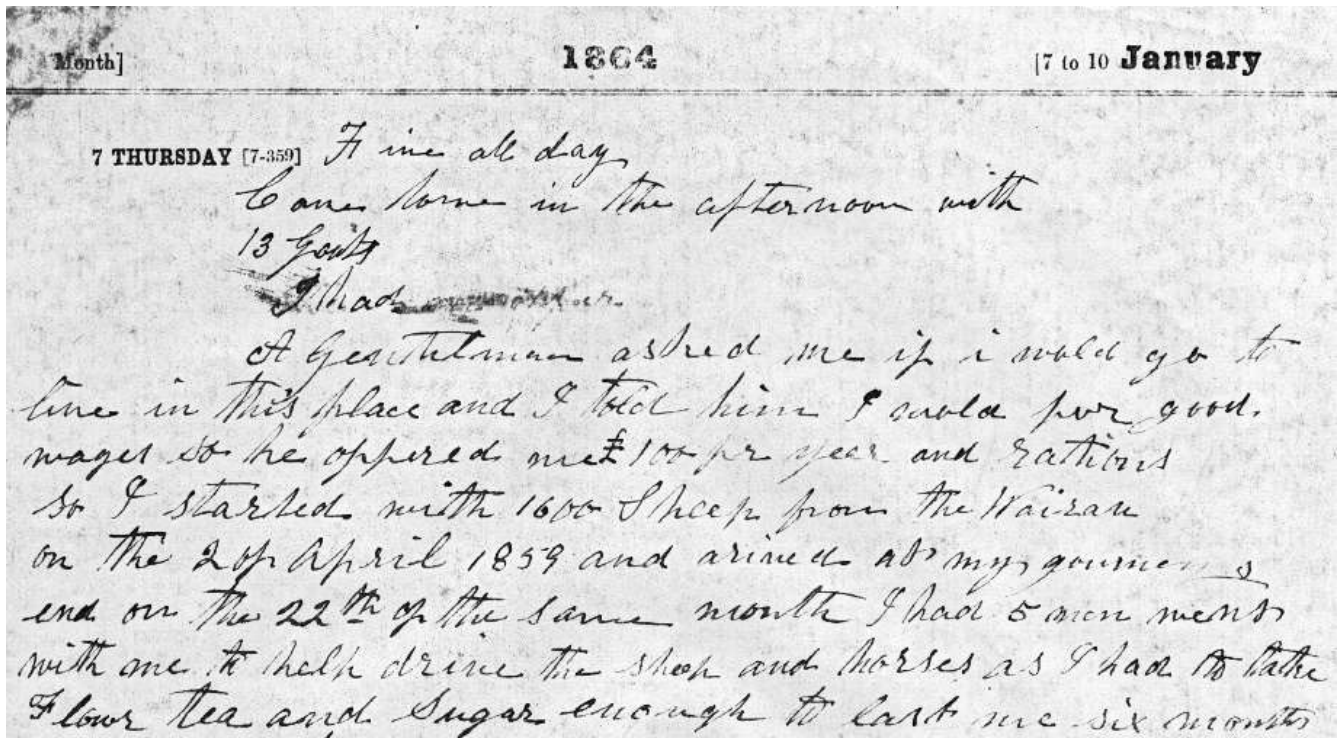 Month] 1864 [7 to 10 January
7 THURSDAY [7-359] Fine all day
Came home in the afternoon with
13 Goats
I had
A Gentelman asked me if i wold go to
live in this place and I told him I wold for good
wages so he offered me £100 pr year and rations
so I started with 1600 Sheep from the Wairau
on the 2 of April 1859 and arived at my
end on the 22th of the same month I had 5 men went
with me to help drive the sheep and horses as I had to take
Flowr tea and Sugar enough to last me six months